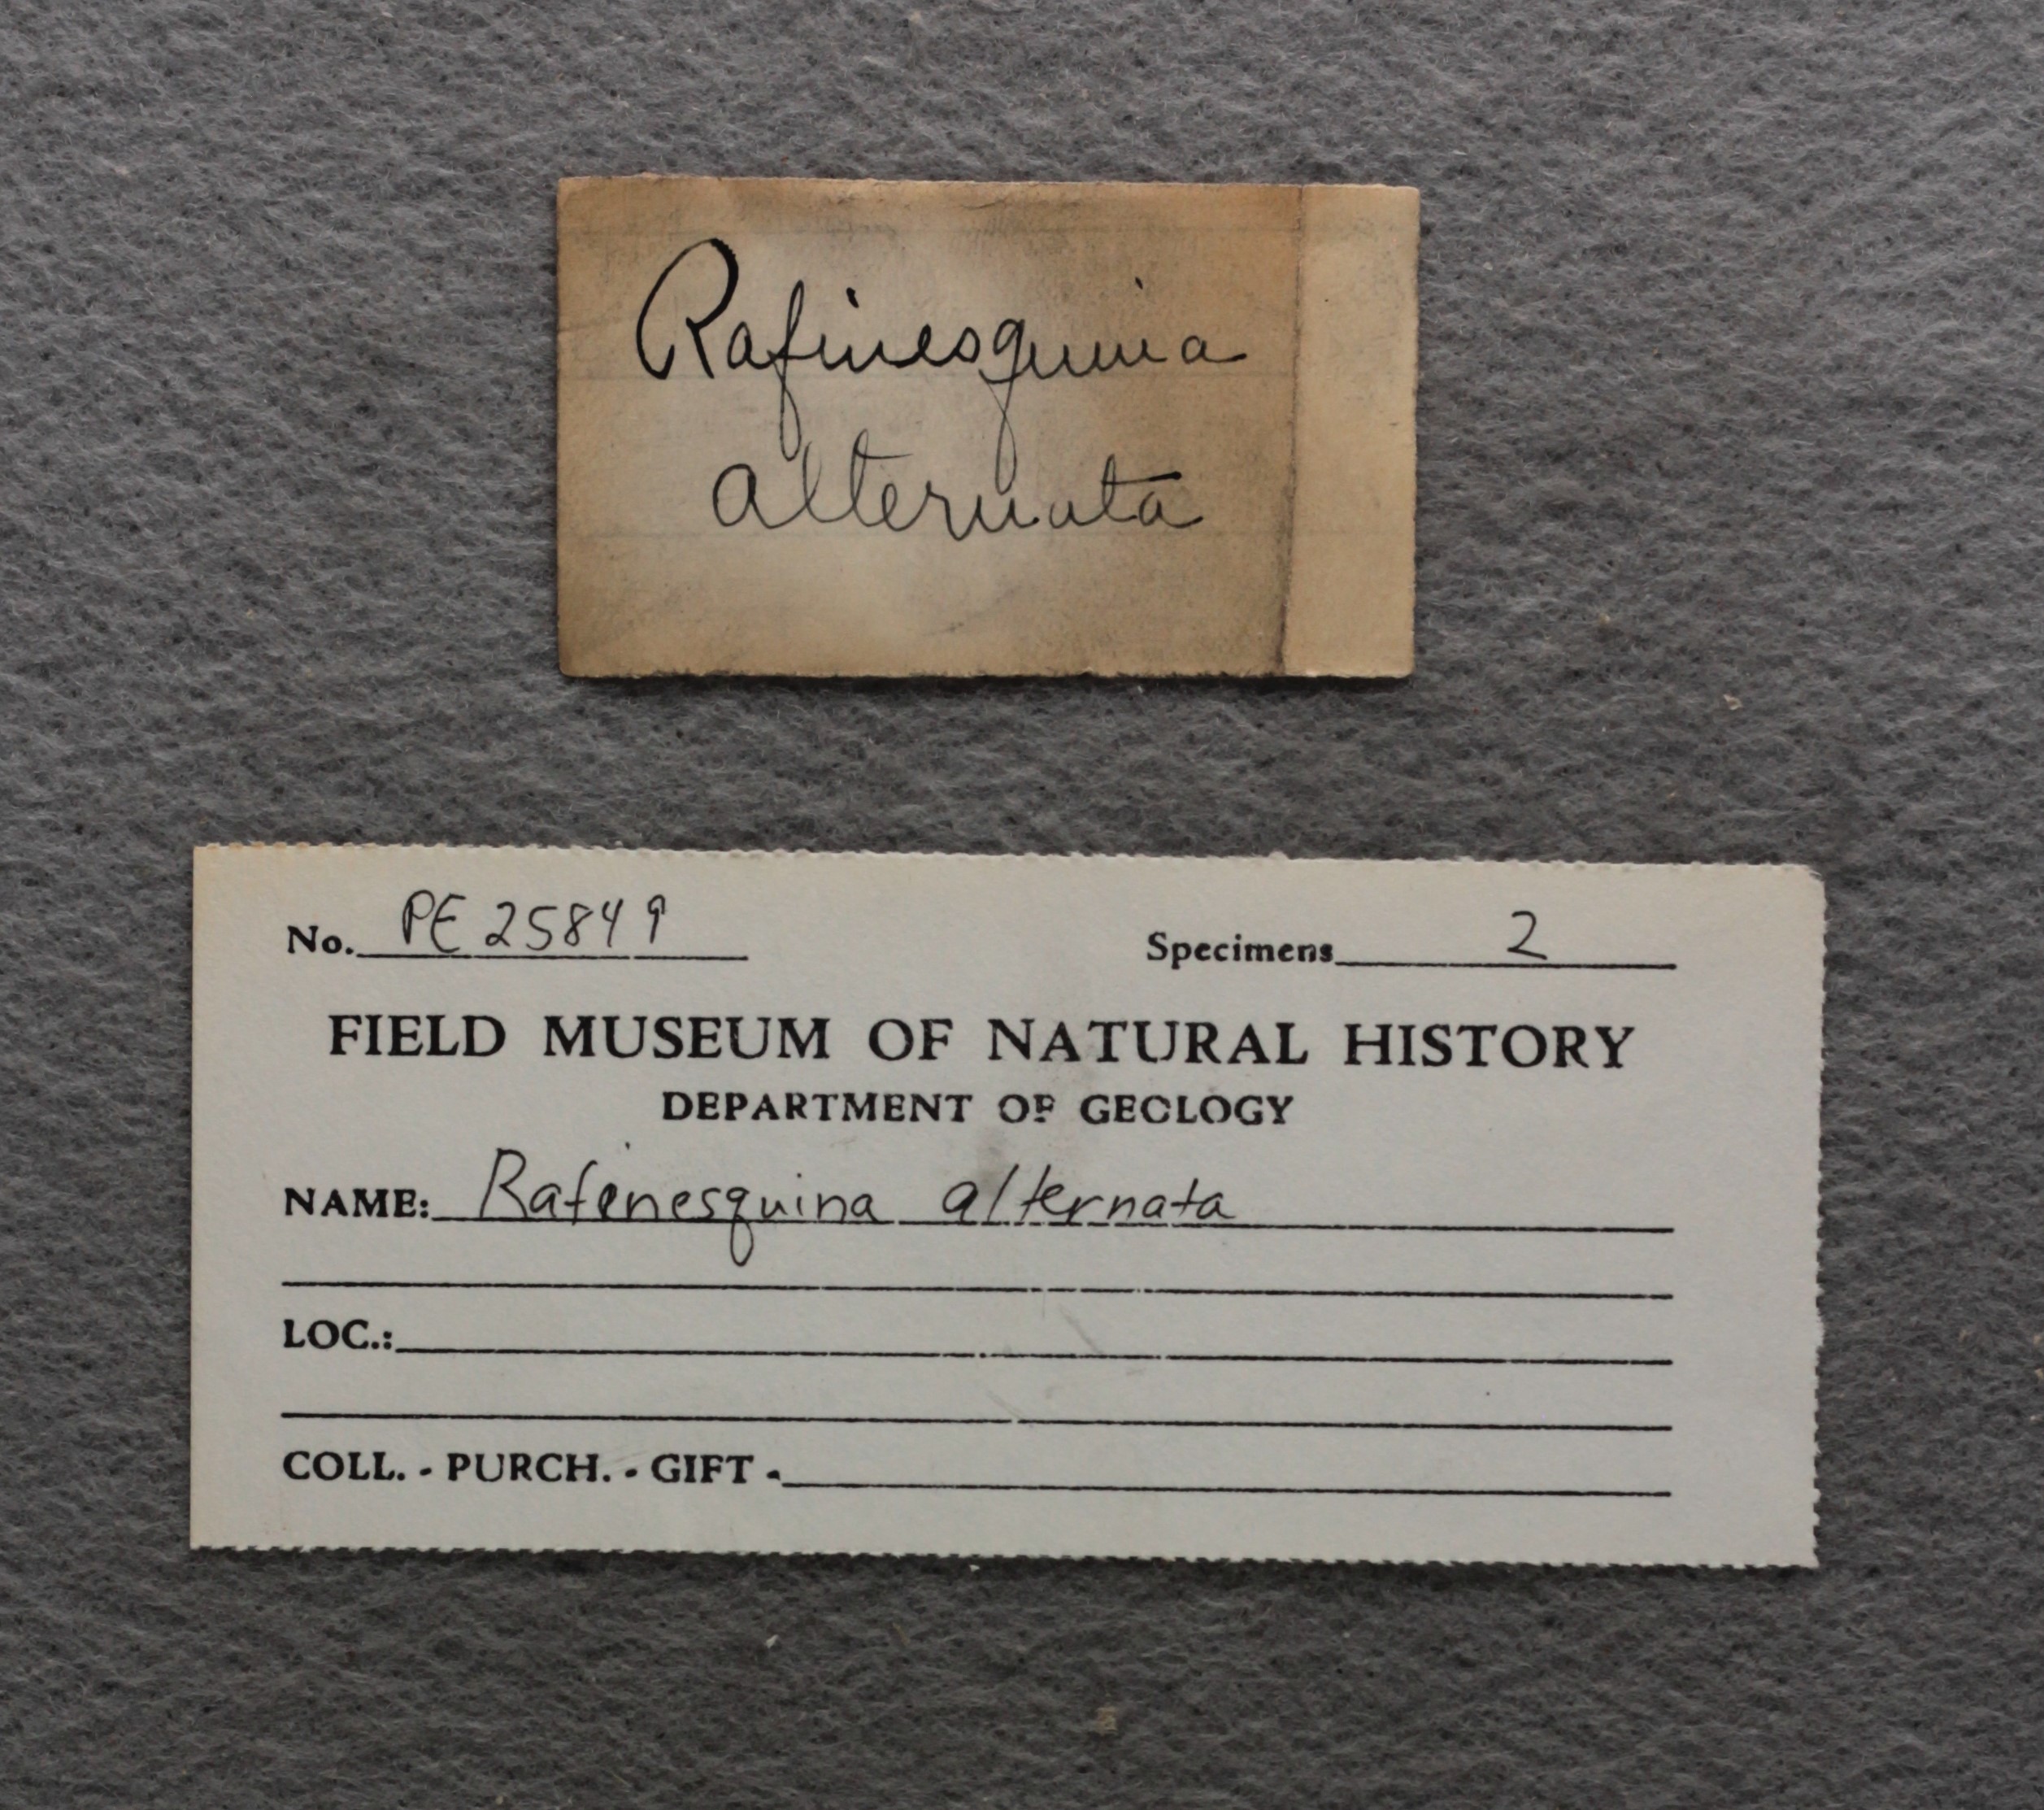 Rafinesquina
alternata
No. PE 25849 Specimens 2
FIELD MUSEUM OF NATURAL HISTORY
DEPARTMENT OF GEOLOGY
NAME: Rafinesquina alternata
LOC.:
COLL. - PURCH. - GIFT -